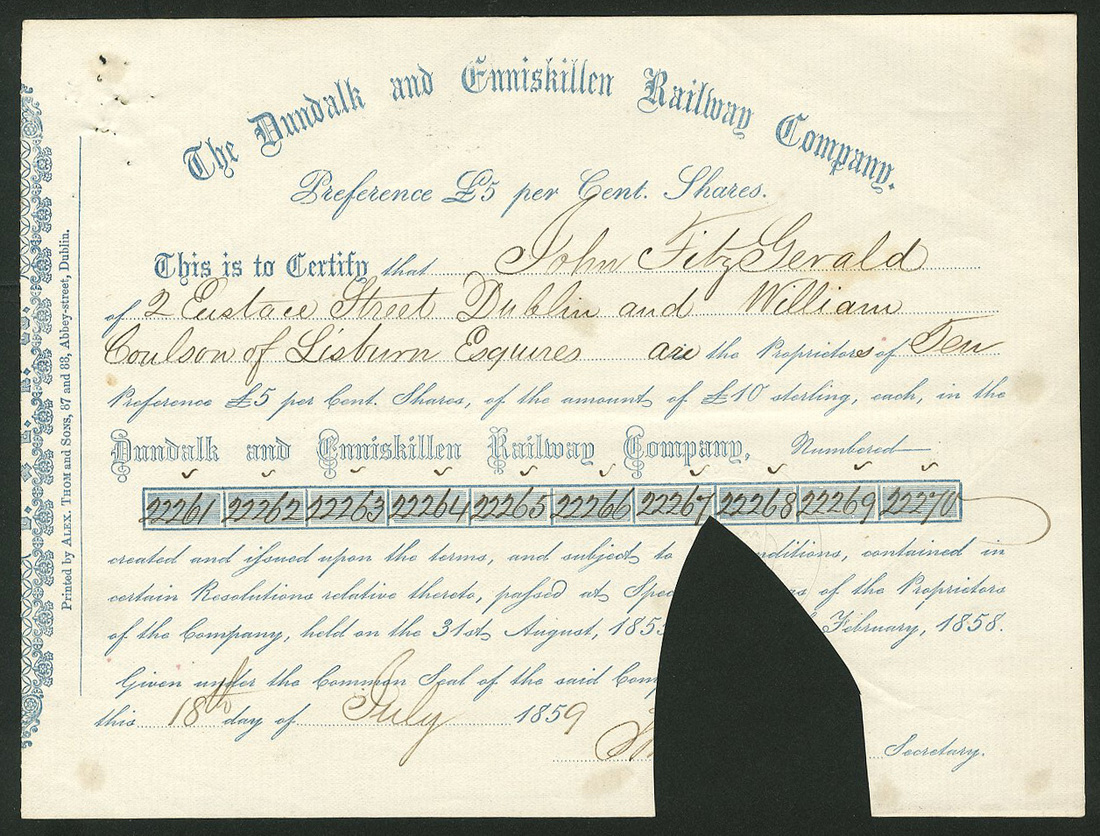 The Dundalk and Enniskillen Railway Company.
Preference £5 per Cent. Shares.
This is to Certify that John FitzGerald
of 2 Eustace Street Dublin and William
Coulson of Lisburn Esquires are the Proprietors of Ten
Preference £5 per Cent. Shares, of the amount of £10 sterling, each, in the
Dundalk and Enniskillen Railway Company, Numbered
22261 22262 22263 22264 22265 22266 22267 22268 22269 22270
created and issued upon the terms, and subject to nditions, contained in
certain Resolutions relative thereto, passed at Spec gs of the Proprietors
of the Company, held on the 31st August, 185 February, 1858.
Given under the Common Seal of the said Comp
this 18th day of July 1859
Secretary.
Printed by ALEX. THOM and SONS, 87 and 88, Abbey-street, Dublin.